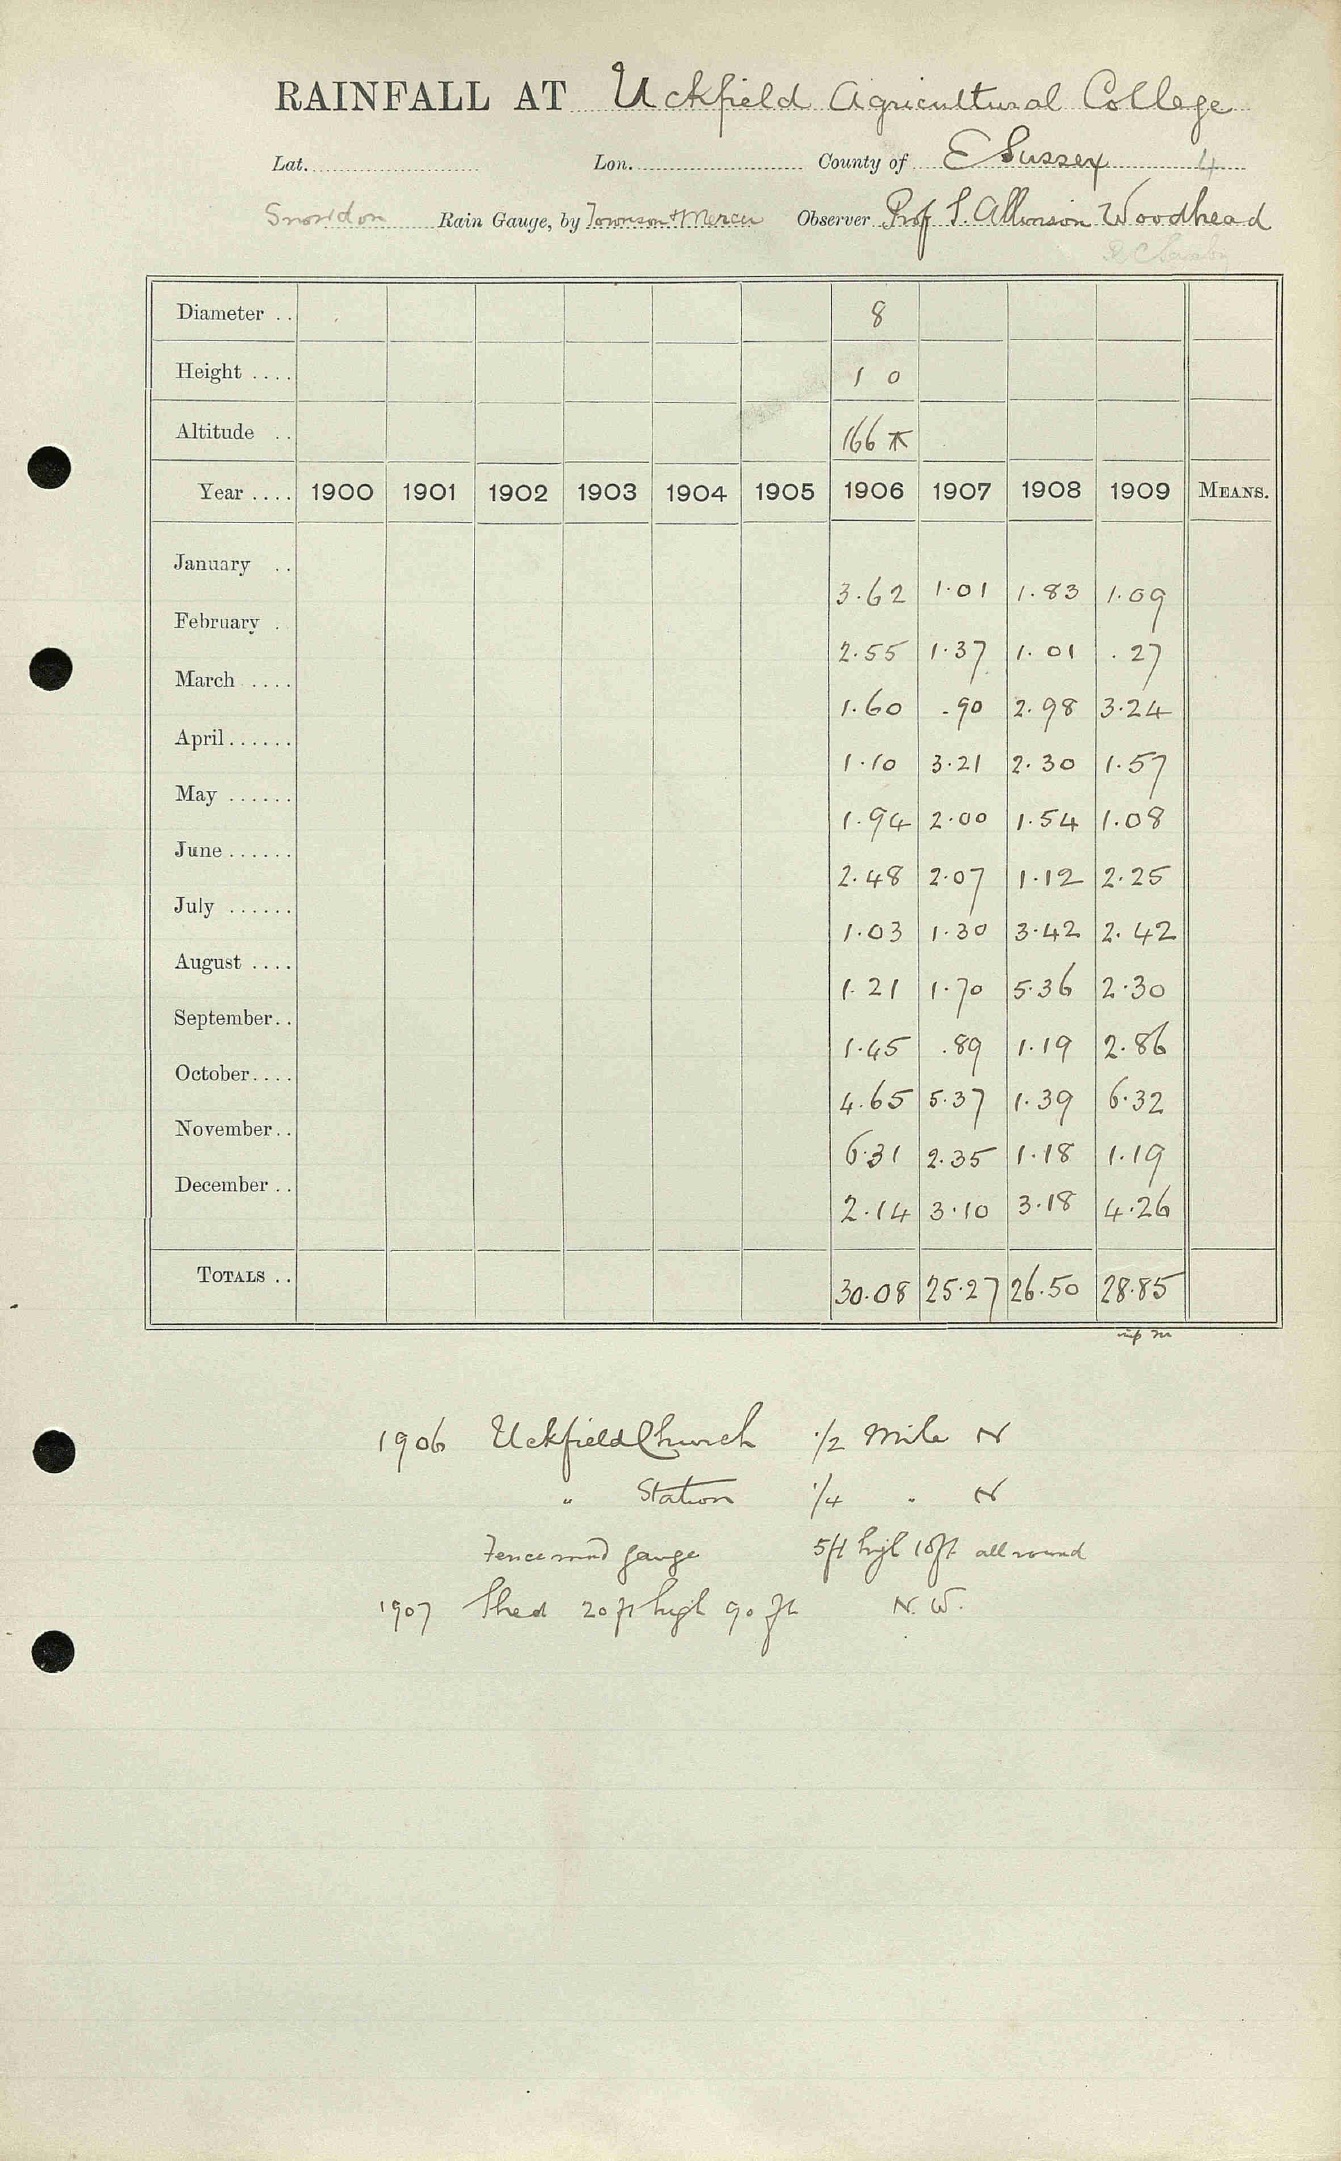 RAINFALL AT Uckfield Agricultural College
Lat. Lon. County of E Sussex 4
Snowdon Rain Gauge, by Townson & Mercer Observer Prof S. Allinson Woodhead
Diameter . . 8
Height . . . . 1 0
Altitude . . 166
Year . . . . 1900 1901 1902 1903 1904 1905 1906 1907 1908 1909 MEANS.
January . . 3.62 1.01 1.83 1.09
February . 2.55 1.37 1.01 .27
March . . . . 1.60 .90 2.98 3.24
April . . . . . . 1.10 3.21 2.30 1.57
May . . . . . . 1.94 2.00 1.54 1.08
June . . . . . . 2.48 2.07 1.12 2.25
July . . . . . . 1.03 1.30 3.42 2.42
August . . . . 1.21 1.70 5.36 2.30
September . . 1.45 .89 1.19 2.86
October . . . . 4.65 5.37 1.39 6.32
November . . 6.31 2.35 1.18 1.19
December . . 2.14 3.10 3.18 4.26
TOTALS . . 30.08 25.27 26.50 28.85
1906 Uckfield Church 1/2 Mile N
" Station 1/4 " N
Fence round gauge 5ft high 10ft all round
1907 Shed 20 ft high 90 ft N. W.